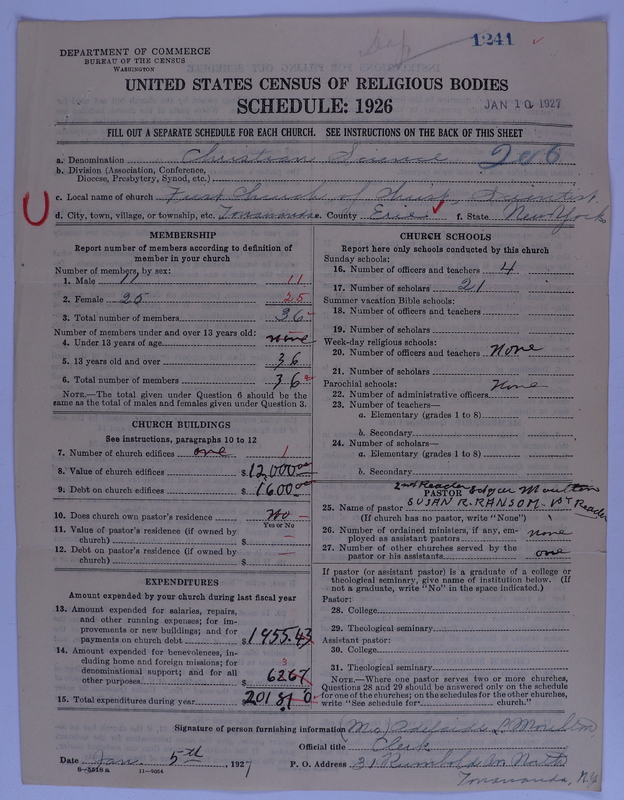 Dep 1241
DEPARTMENT OF COMMERCE
BUREAU OF THE CENSUS
WASHINGTON
UNITED STATES CENSUS OF RELIGIOUS BODIES
SCHEDULE: 1926
JAN 10 1927
FILL OUT A SEPARATE SCHEDULE FOR EACH CHURCH. SEE INSTRUCTIONS ON THE BACK OF THIS SHEET
a. Denomination Christian Science 206
b. Division (Association, Conference,
Diocese, Presbytery, Synod, etc.)
c. Local name of church First Church of Christ, Scientist
d. City, town, village, or township, etc. Tonawanda e. County Erie f. State New York
MEMBERSHIP
Report number of members according to definition of
member in your church
Number of members, by sex:
1. Male 11 11
2. Female 25 25
3. Total number of members 36
Number of members under and over 13 years old:
4. Under 13 years of age none
5. 13 years old and over 36
6. Total number of members 36
NOTE.—The total given under Question 6 should be
same as the total of males and females given under Question 3.
CHURCH BUILDINGS
See instructions, paragraphs 10 to 12
7. Number of church edifices one 1
8. Value of church edifices $12,000.00
9. Debt on church edifices $1600.00
10. Does church own pastor's residence No
Yes or No
11. Value of pastor's residence (if owned by
church) $
12. Debt on pastor's residence (if owned by
church) $
EXPENDITURES
Amount expended by your church during last fiscal year
13. Amount expended for salaries, repairs,
and other running expenses; for im-
provements or new buildings; and for
payments on church debt $1955.43
14. Amount expended for benevolences, in-
cluding home and foreign missions; for
denominational support; and for all
other purposes $ 62.67 3
15. Total expenditures during year $2018.10
CHURCH SCHOOLS
Report here only schools conducted by this church
Sunday schools:
16. Number of officers and teachers 4
17. Number of scholars 21
Summer vacation Bible schools:
18. Number of officers and teachers
19. Number of scholars
Week-day religious schools:
20. Number of officers and teachers None
21. Number of scholars
Parochial schools: None
22. Number of administrative officers
23. Number of teachers—
a. Elementary (grades 1 to 8)
b. Secondary
24. Number of scholars—
a. Elementary (grades 1 to 8)
b. Secondary
2nd Reader Edgar Moulton
PASTOR
25. Name of pastor SUSAN R. RANSOM - 1st Reader
(If church has no pastor, write "None")
26. Number of ordained ministers, if any, em-
ployed as assistant pastors none
27. Number of other churches served by the
pastor or his assistants one
If pastor (or assistant pastor) is a graduate of a college or
theological seminary, give name of institution below. (If
not a graduate, write "No" in the space indicated.)
Pastor:
28. College
29. Theological seminary
Assistant pastor:
30. College
31. Theological seminary
NOTE.—Where one pastor serves two or more churches,
Questions 28 and 29 should be answered only on the schedule
for one of the churches; on the schedules for the other churches,
write "See schedule for church."
Signature of person furnishing information (Mrs) Adelaide L. Moulton
Official title Clerk
Date Jan. 5th, 1927 P. O. Address 31 Rumbold Av North
8—5518 a 11—9054 Tonawanda, N.Y.